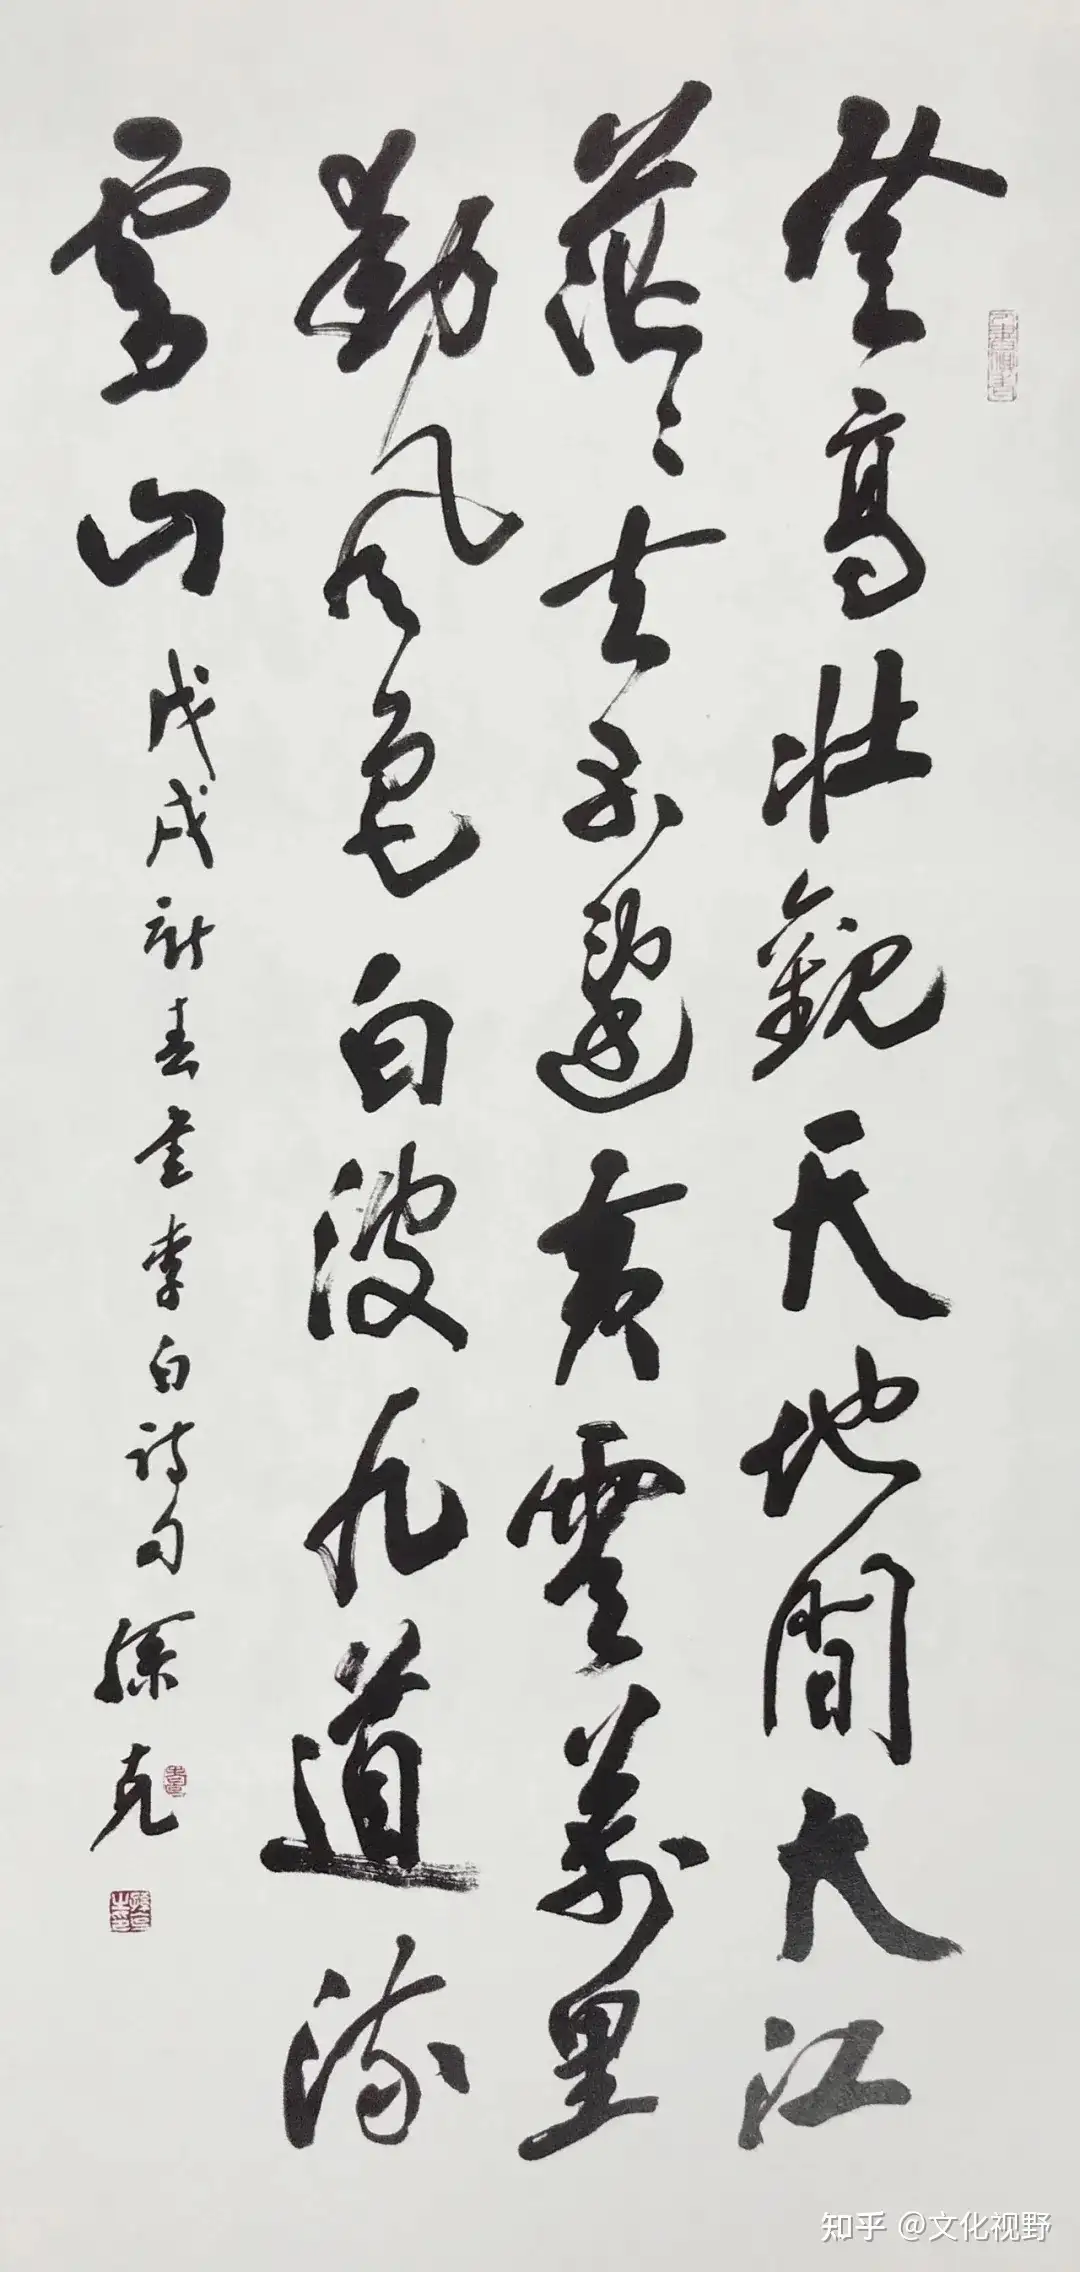 登高壯觀天地間大江
茫茫去不還黃雲萬里
動風色白波九道流
雪山
戊戌新春書李白詩句 孫克
知乎 @文化视野